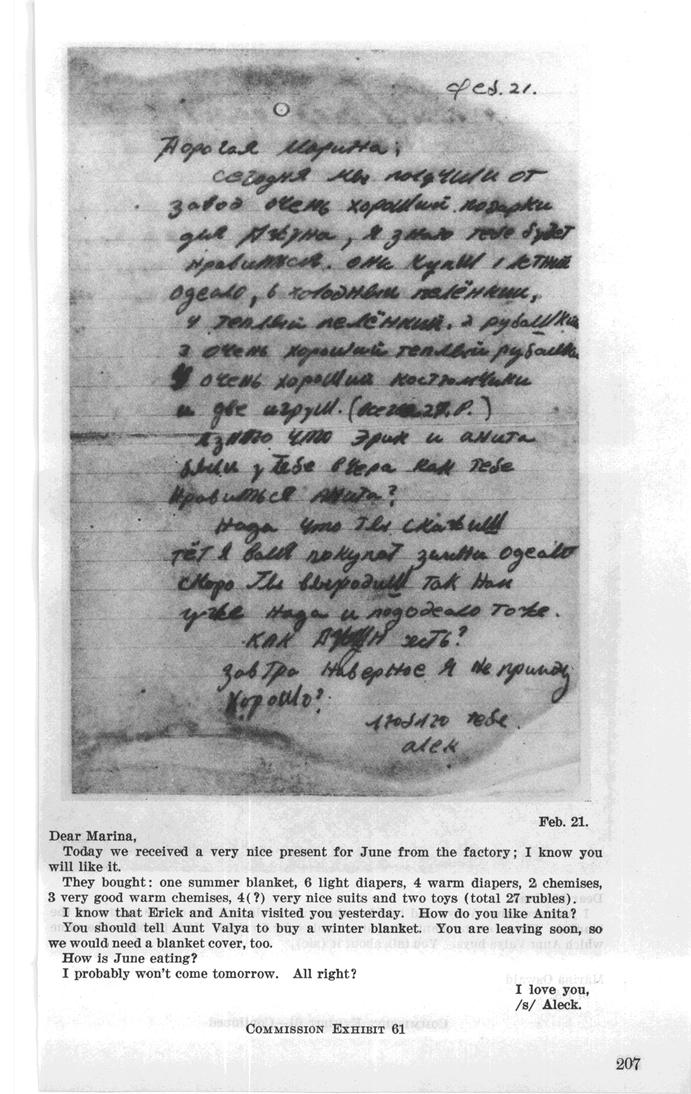 Фев. 21.
Дорогая Марина;
сегодня мы получили от
завод очень хороший подарки
для Джуна, я знаю тебе будет
нравиться. они купил 1 летний
одеало, 6 холодным пелёнкии,
4 теплый пелёнкий. 2 рубашки
3 очень хороший теплый рубашки
4 очень хороший костюмчики
и две игруш. (всего 27. Р.)
Я знаю что Эрик и анита
были у тебе вчера как тебе
нравиться анита?
Нада что ты скажыш
тёт я валя покупат зимни одеало
скоро ты выходиш так нам
уже нада и пододеало тоже.
КАК есть?
завтра наверное я не прииду
Хорошо?
люблю тебе.
aleк
Feb. 21.
Dear Marina,
Today we received a very nice present for June from the factory; I know you
will like it.
They bought: one summer blanket, 6 light diapers, 4 warm diapers, 2 chemises,
3 very good warm chemises, 4(?) very nice suits and two toys (total 27 rubles).
I know that Erick and Anita visited you yesterday. How do you like Anita?
You should tell Aunt Valya to buy a winter blanket. You are leaving soon, so
we would need a blanket cover, too.
How is June eating?
I probably won't come tomorrow. All right?
I love you,
/s/ Aleck.
COMMISSION EXHIBIT 61
207